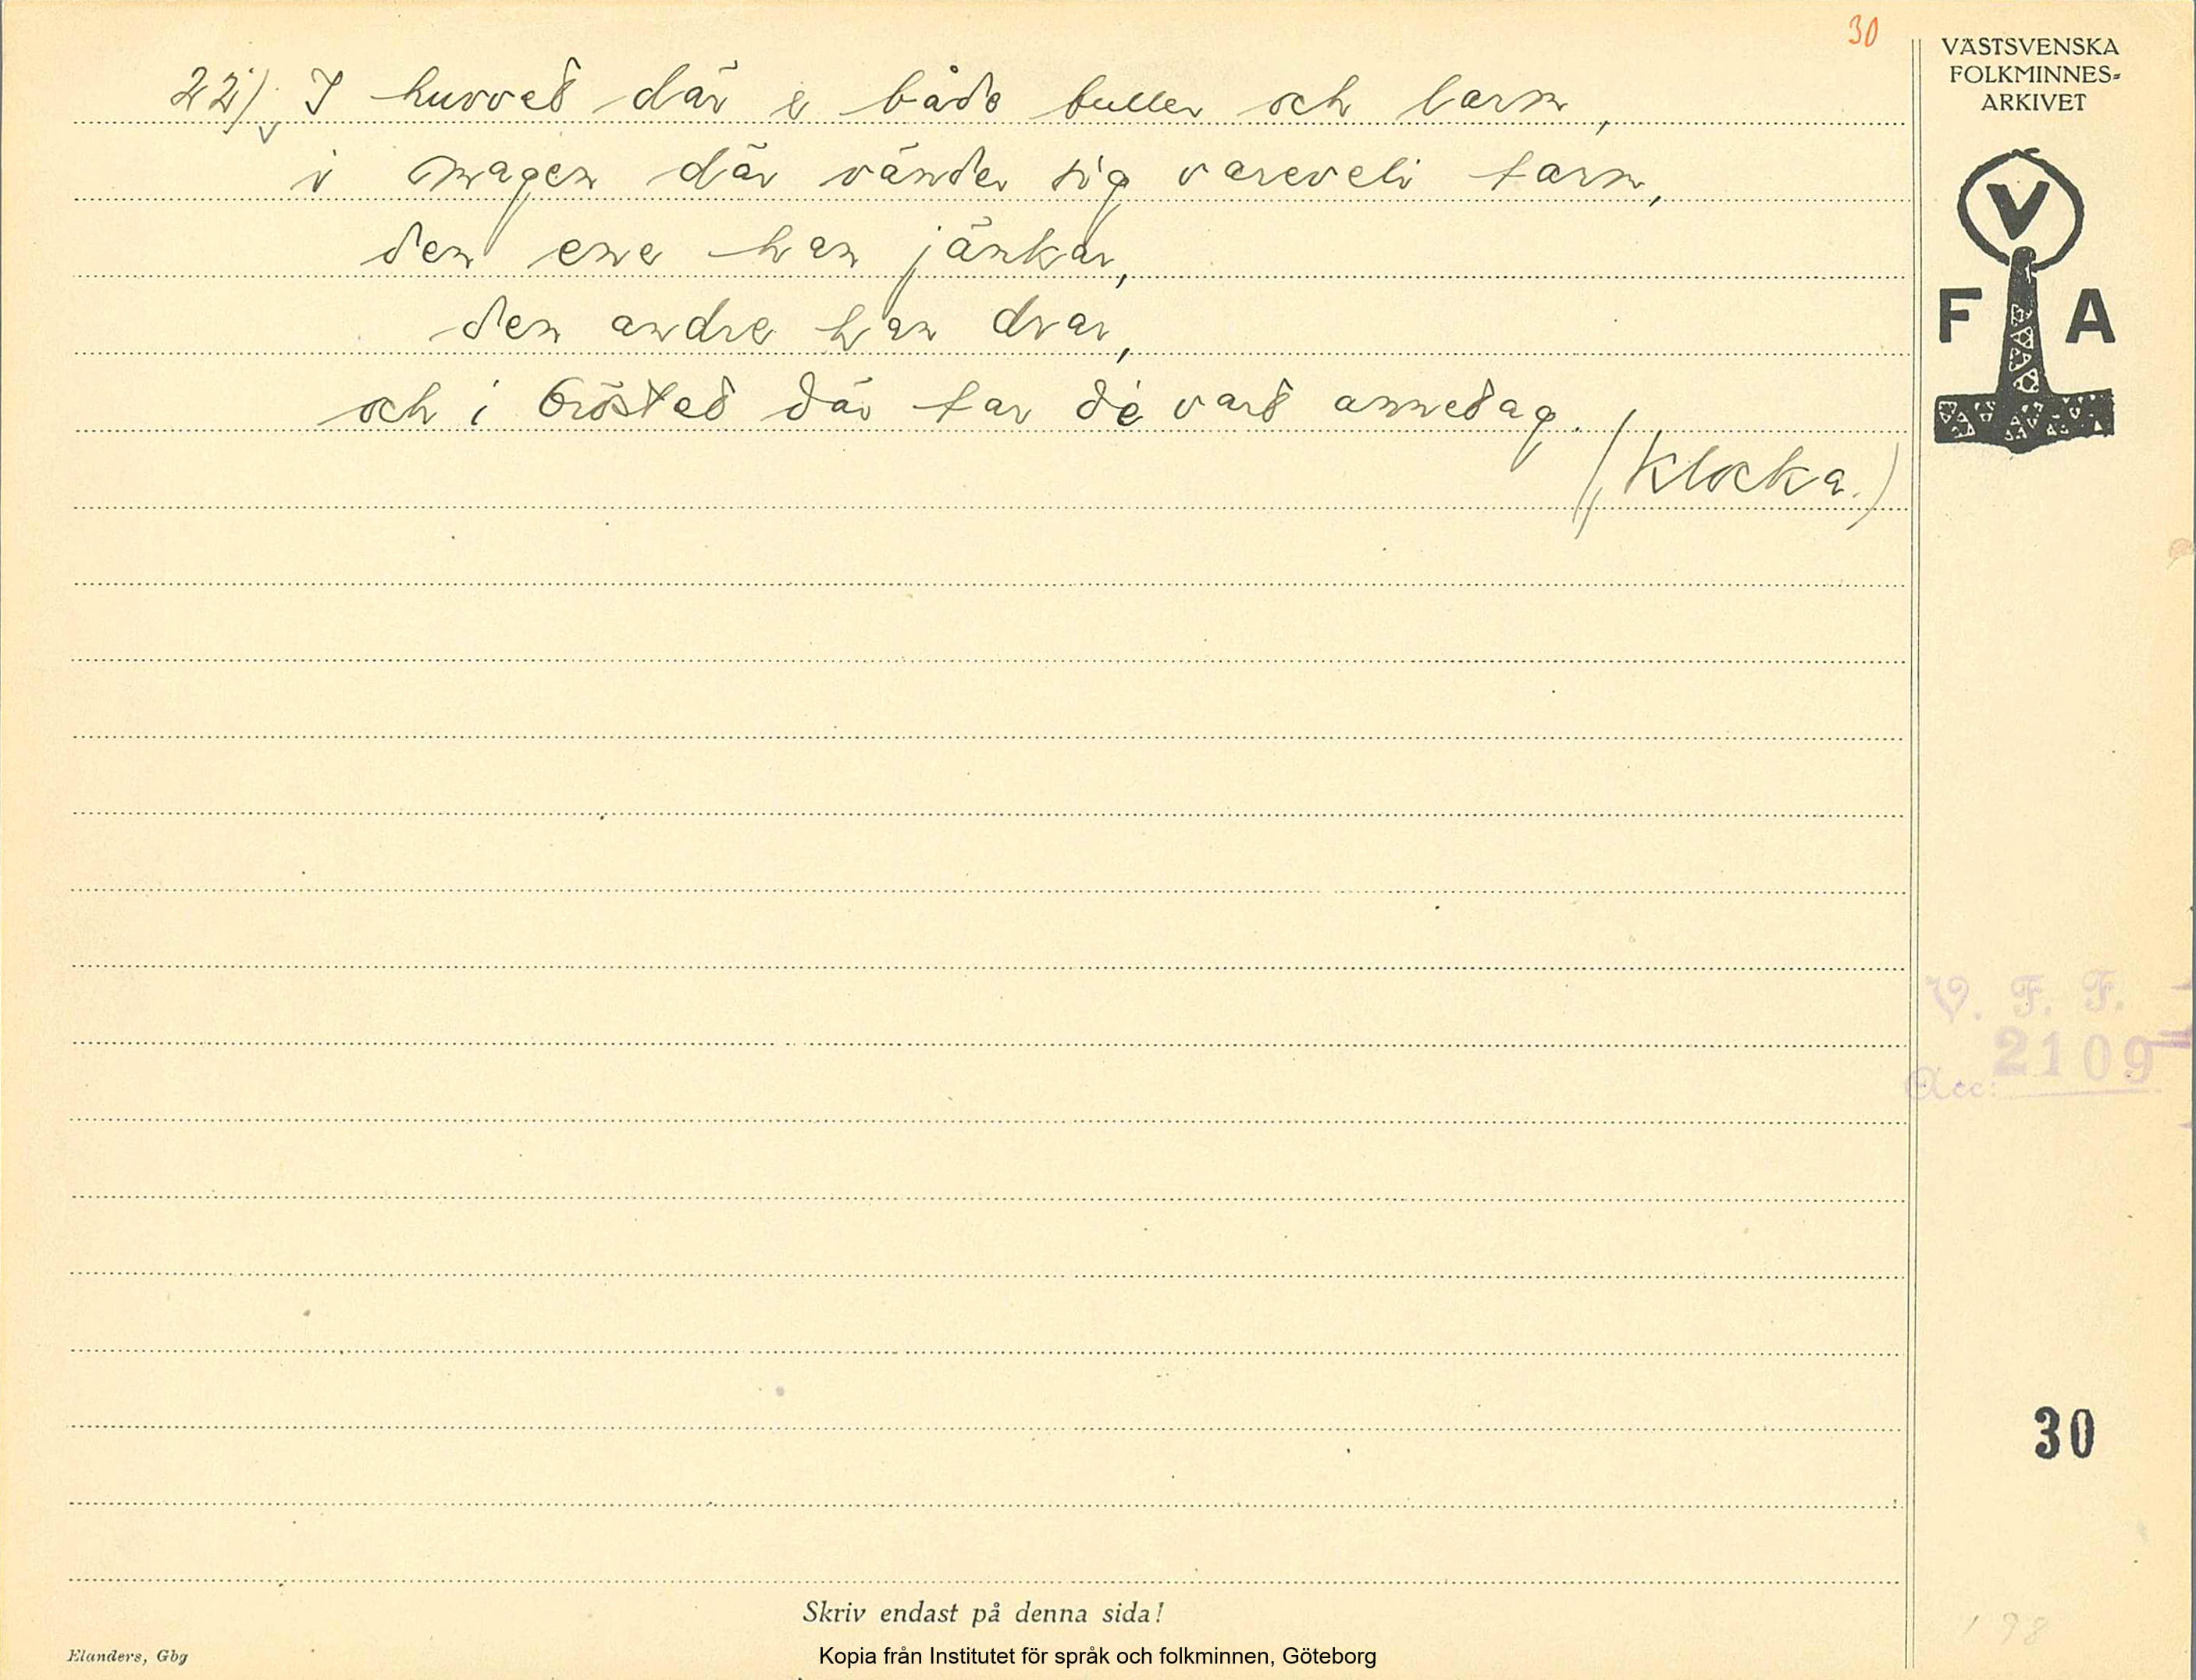 30
22) I huvved där e både buller och larm,
i magen där vänder sig vareveli tarm,
den ene han jänkar,
den andre han drar,
och i brösted där tar dé vard annedag.
(Klocka.)
VÄSTSVENSKA
FOLKMINNES-
ARKIVET
V
F A
V. F. F.
Acc: 2109
30
198
Skriv endast på denna sida!
Elanders, Gbg
Kopia från Institutet för språk och folkminnen, Göteborg